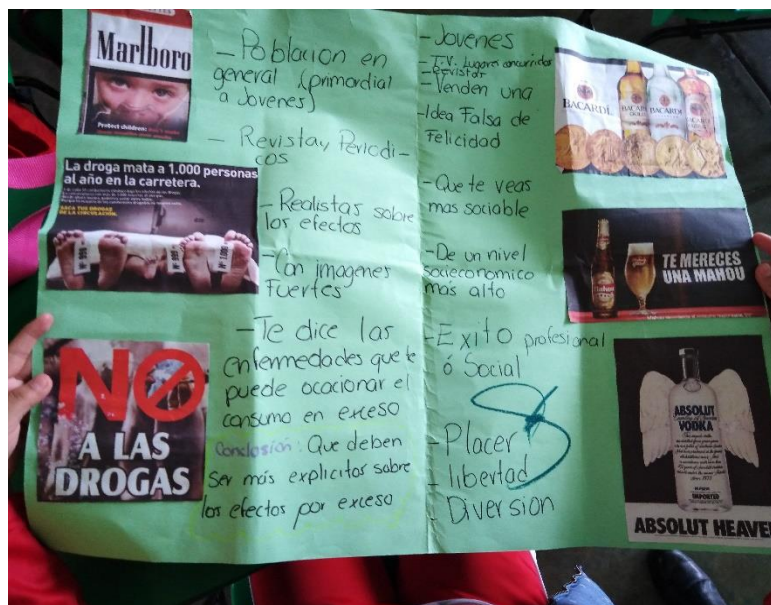 Marlboro
Protect children:
La droga mata a 1.000 personas
al año en la carretera.
SACA TUS DROGAS
DE LA CIRCULACIÓN.
Nº 999
Nº 1.000
NO
A LAS
DROGAS
-Poblacion en
general (primordial
a Jovenes)
- Revistay Periodi-
cos
-Realistas sobre
los efectos
-Con imagenes
Fuertes
-Te dice las
enfermedades que te
puede ocacionar el
consumo en exceso
Conclosión: Que deben
ser más explicitos sobre
los efectos por exceso
-Jovenes
-T.V. Lugares concurridos
-Revistas
-Venden una
-Idea Falsa de
Felicidad
-Que te veas
mas sociable
-De un nivel
socieconomico
más alto
-Exito profesional
ó Social
-Placer
-libertad
-Diversion
8
BACARDÍ.
BACARDI
BACARDI
TE MERECES
UNA MAHOU
ABSOLUT
VODKA
IMPORTED
ABSOLUT HEAVE